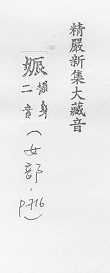 精嚴新集大藏音
娠 振身二音(女部,p.716)